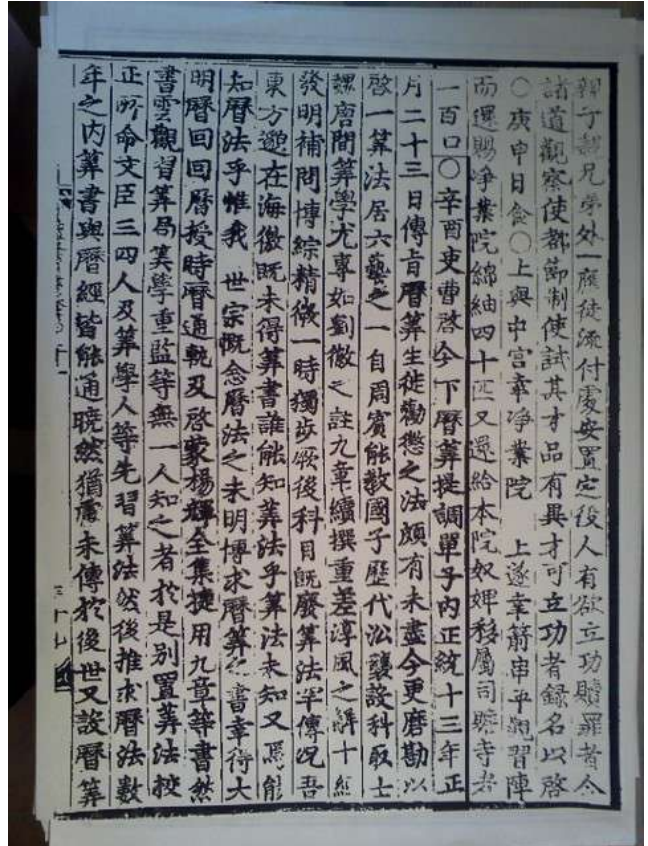 親子壻兄弟外一應徒流付處安置定役人有欲立功贖罪者令
諸道觀察使都節制使試其才品有異才可立功者録名以啓
○庚申日食○上與中宮幸淨業院 上遂幸箭串平親習陣
而還賜淨業院綿紬四十匹又還給本院奴婢移屬司贍寺者
一百口○辛酉吏曹啓今下曆筭提調單子內正統十三年正
月二十三日傳旨曆筭生徒勸懲之法頗有未盡今更磨勘以
啓一筭法居六藝之一自周賓能敎國子歷代沿襲設科取士
魏唐間筭學尤專如劉徽之註九章續撰重差淳風之觧十經
發明補問博綜精微一時獨步厥後科目旣廢筭法罕傳况吾
東方邈在海徼旣未得筭書誰能知筭法乎筭法未知又焉能
知曆法乎惟我 世宗慨念曆法之未明博求曆筭之書幸得大
明曆回回曆授時曆通軌及啓蒙楊輝全集捷用九章等書然
書雲觀習筭局筭學重監等無一人知之者於是別置筭法校
正所命文臣三四人及筭學人等先習筭法然後推求曆法數
年之内筭書與曆經皆能通曉然猶慮未傳於後世又設曆筭
三十九